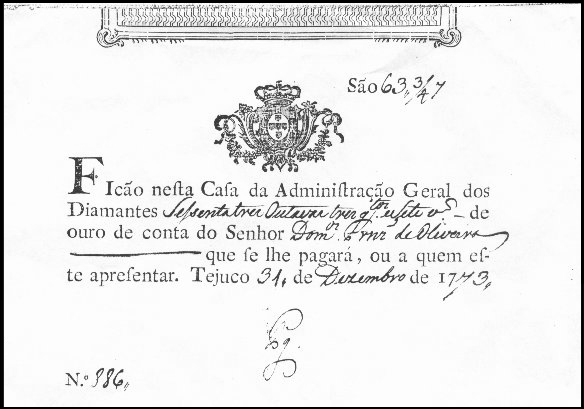 São 63, 3/4 7
FIcão neſta Caſa da Adminiſtração Geral dos
Diamantes Seſsenta trez Outavas trez q.tos e ſete v.s - de
ouro de conta do Senhor Dom.os Frnz de Oliveira
que ſe lhe pagará, ou a quem eſ-
te apreſentar. Tejuco 31, de Dezembro de 1773,
N.º 886,